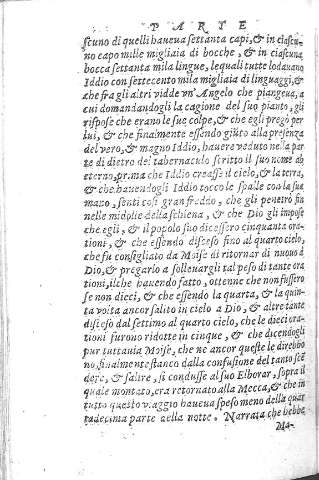 PARTE
scuno di quelli haueua settanta capi, & in ciascu-
no capo mille migliaia di bocche, & in ciascuna
bocca settanta mila lingue, lequali tutte lodauano
Iddio con settecento mila migliaia di linguaggi, &
che fra gli altri vidde vn'Angelo che piangeua, a
cui domandandogli la cagione del suo pianto, gli
rispose che erano le sue colpe, & che egli pregò per
lui, & che finalmente essendo giũto alla presenza
del vero, & magno Iddio, hauere veduto nella par
te di dietro del tabernaculo scritto il suo nome ab
eterno, prima che Iddio creasse il cielo, & la terra,
& che hauendogli Iddio tocco le spalle con la sua
mano, sentì così gran freddo, che gli penetrò fin
nelle midolle della schiena, & che Dio gli impose
che egli, & il popolo suo dicessero cinquanta ora
tioni, & che essendo disceso fino al quarto cielo,
che fu consigliato da Moisè di ritornar di nuouo à
Dio, & pregarlo a solleuargli tal peso di tante ora
tioni, ilche hauendo fatto, ottenne che non fussero
se non dieci, & che essendo la quarta, & la quin-
ta volta ancor salito in cielo a Dio, & altre tante
disceso dal settimo al quarto cielo, che le dieci ora-
tioni furono ridotte in cinque, & che dicendogli
pur tuttauia Moisè, che ne ancor queste le direbbo
no, finalmente stanco dalla confusione del tanto scẽ
dere, & salire, si condusse al suo Elborar, sopra il
quale montato, era retornato alla Mecca, & che in
tutto questo viaggio haueua speso meno della quar
tadecima parte della notte. Narrata che hebbe
Ma-